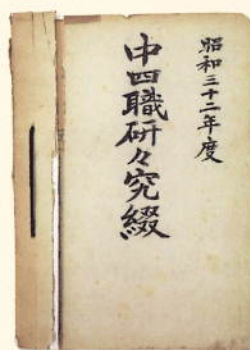 昭和三十二年度
中四職研々究綴